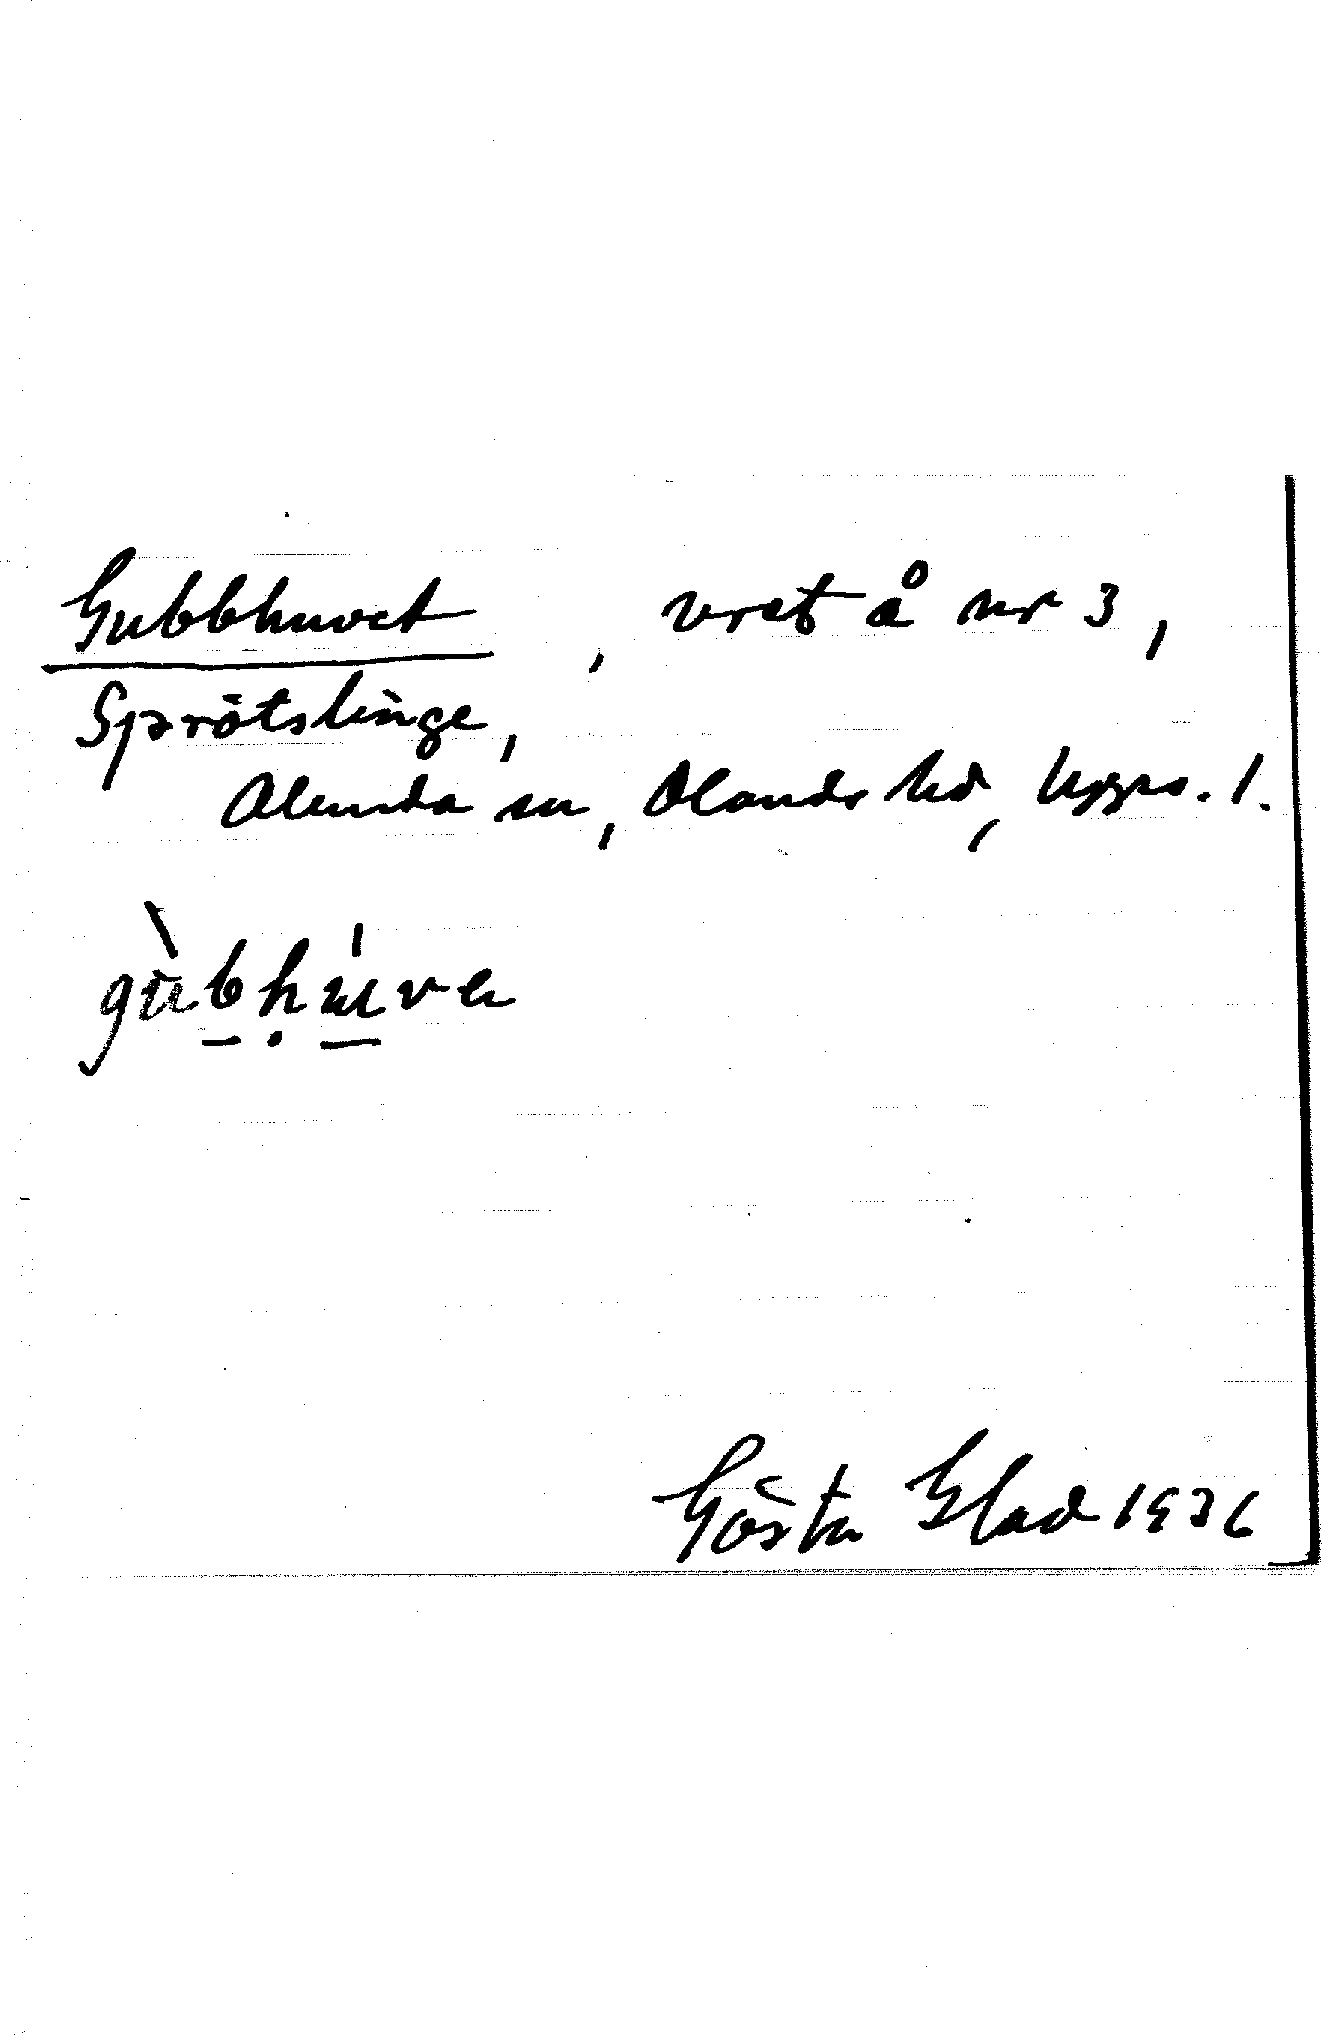 Gubbhuvet, vret å nr 3,
Sprötslinge,
Alunda sn, Olands hd, Upps. l.
gù̀bḥúvɐ
Gösta Blad 1936